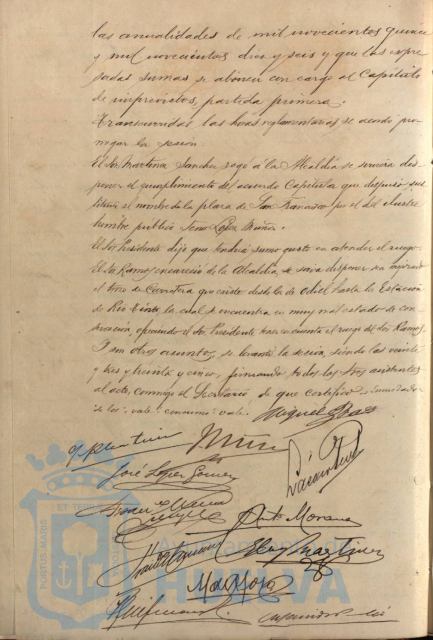 las anualidades de mil novecientos quince
y mil novecientos diez y seis y que las expre
sadas sumas se abonen con cargo al Capítulo
de imprevistos, partida primera.
Transcurridas las horas reglamentarias se acordó pro
rrogar la sesión.
El Sr. Martínez Sánchez rogó a la Alcaldía se sirviera dis
poner el cumplimiento del acuerdo Capitular que dispuso sus
tituir el nombre de la plaza de San Francisco por el del ilustre
hombre público Señor López Muñoz.
El Sr. Presidente dijo que tendría sumo gusto en atender el ruego.
El Sr. Ramos encareció de la Alcaldía, se sirva disponer sea
el trozo de Carretera que existe desde la de Odiel hasta la Estación
de Río Tinto, la cual se encuentra en muy mal estado de con
servación, ofreciendo el Sr. Presidente tener en cuenta el ruego del Sr. Ramos.
Y sin otros asuntos, se levantó la sesión, siendo las veinte
y tres y treinta y cinco, firmando todos los Sres asistentes
al acto, conmigo el Secretario de que certifico
vale
José López Gómez
Moreno
Eloy Martínez
PORTUS MARIS ET TERRAE
Ayuntamiento de
HUELVA